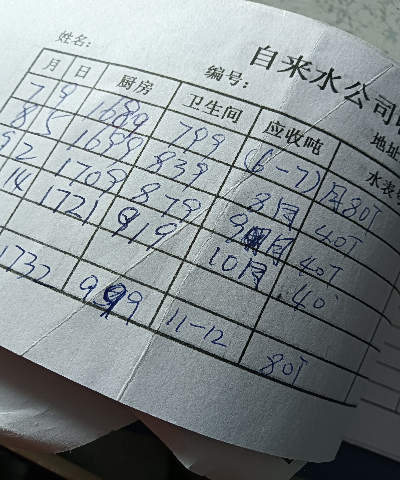 自来水公司
姓名: 编号: 地址
月 日 厨房 卫生间 应收吨 水表
7 9 1689 799 (6-7)月 80T
8 5 1699 839 8月 40T
9 2 1709 879 9月 40T
14 1721 919 10月 40
1737 999 11-12 80T